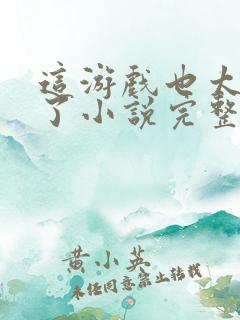 這游戲也太
了小說完整
黄小英
未经同意禁止转载